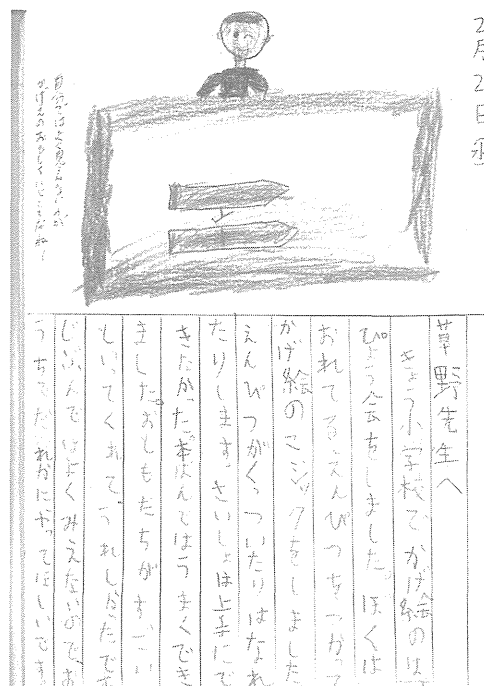 2月2日
草野先生へ
きょう小学校でかげ絵のは
ぴょう会をしました。ぼくは
おれてるえんぴつをつかって
かげ絵のマジックをしました
えんぴつがくっついたりはなれ
たりします。さいしょは上手にで
きなかったけど本ばんではうまくでき
ました。おともだちがすごい
といってくれてうれしかったです
じぶんではよくみえないので、お
うちでだれかにやってほしいです